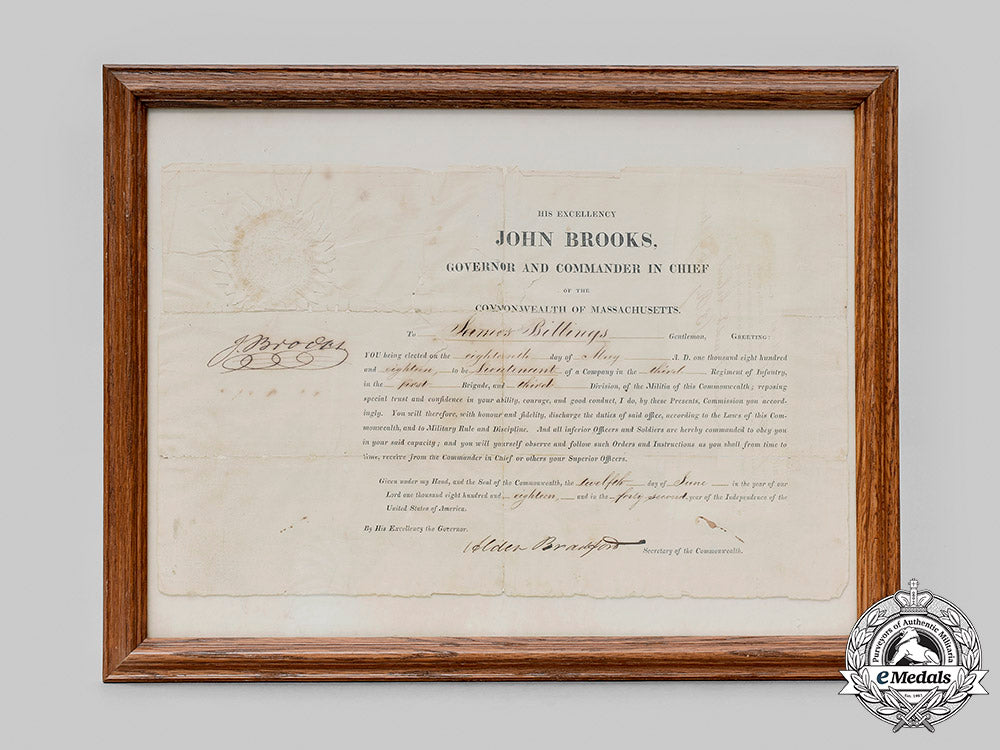 HIS EXCELLENCY
JOHN BROOKS,
GOVERNOR AND COMMANDER IN CHIEF
OF THE
COMMONWEALTH OF MASSACHUSETTS.
To James Billings Gentleman, GREETING:
J. Brooks
YOU being elected on the eighteenth day of May A. D. one thousand eight hundred
and eighteen, to be Lieutenant of a Company in the third Regiment of Infantry,
in the first Brigade, and third Division, of the Militia of this Commonwealth; reposing
special trust and confidence in your ability, courage, and good conduct, I do, by these Presents, Commission you accord-
ingly. You will therefore, with honour and fidelity, discharge the duties of said office, according to the Laws of this Com-
monwealth, and to Military Rule and Discipline. And all inferior Officers and Soldiers are hereby commanded to obey you
in your said capacity; and you will yourself observe and follow such Orders and Instructions as you shall from time to
time, receive from the Commander in Chief or others your Superior Officers.
Given under my Hand, and the Seal of the Commonwealth, the twelfth day of June in the year of our
Lord one thousand eight hundred and eighteen, and in the forty second year of the Independence of the
United States of America.
By His Excellency the Governor.
Alden Bradford Secretary of the Commonwealth.
Purveyors of Authentic Militaria
eMedals